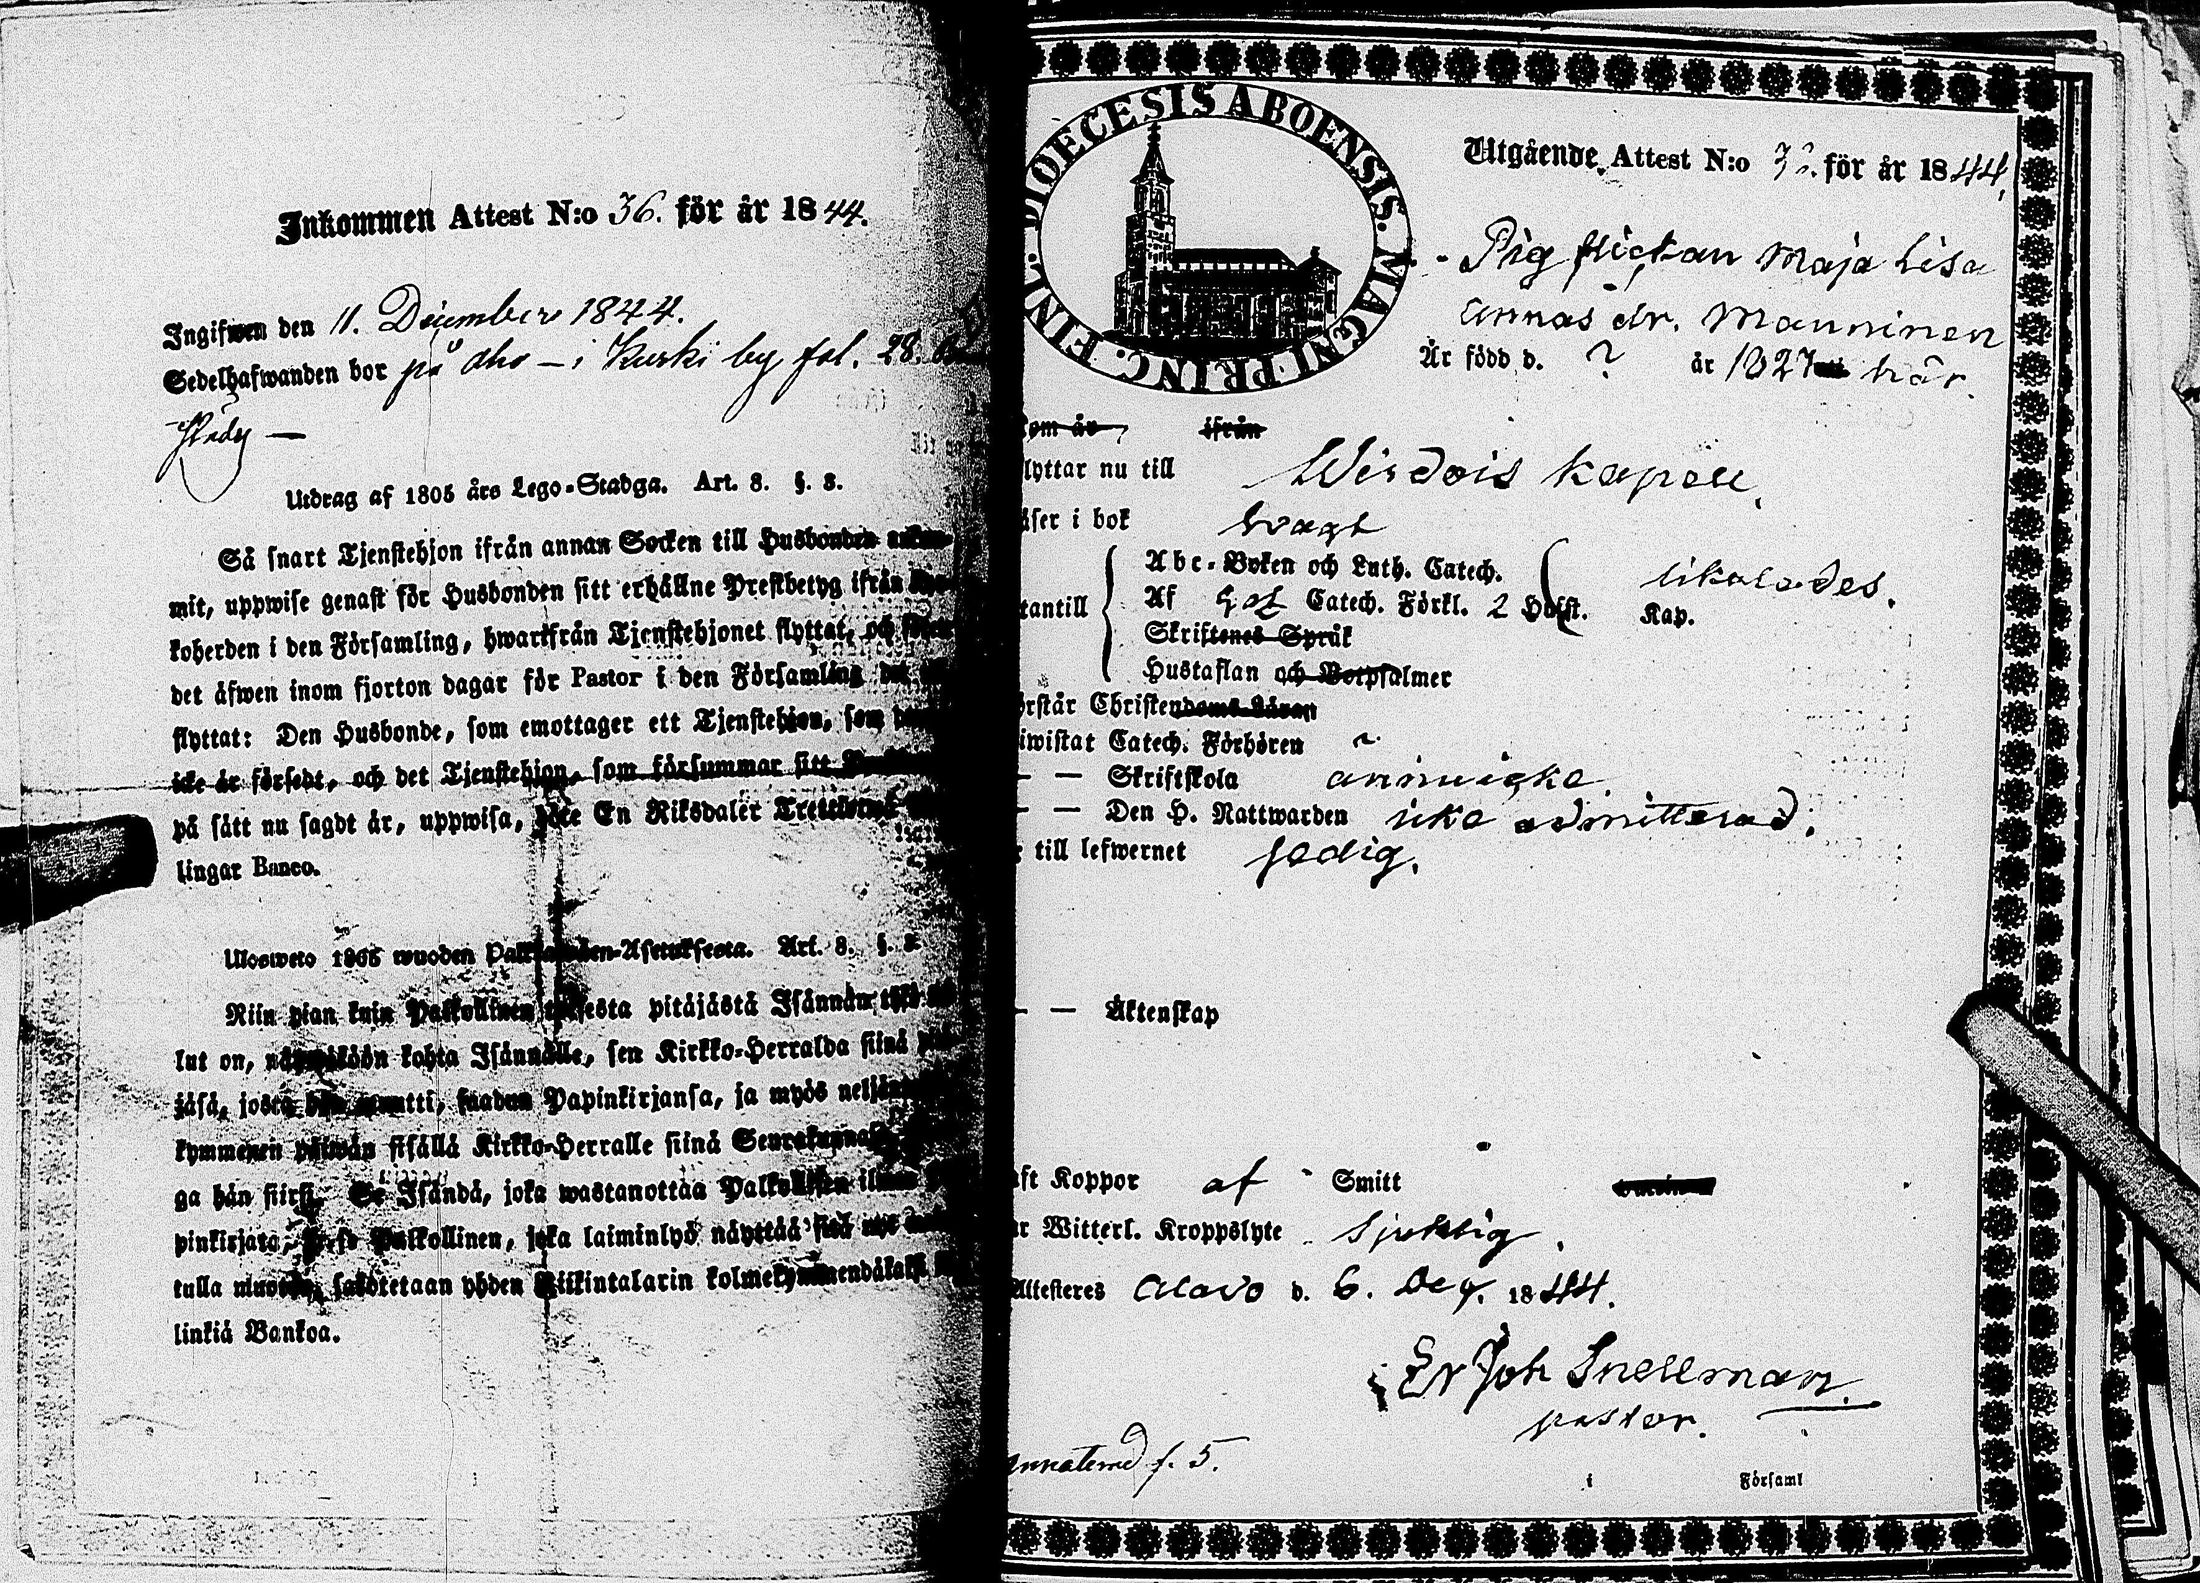 Inkommen Attest N:o 36. för år 1844.
Ingifwen den 11. December 1844.
Sedelhafwanden bor på dho – i Kurki by fol. 28.
Utdrag af 1805 års Lego-Stadga. Art. 8. §. 3.
Så snart Tjenstehjon ifrån annan Socken till Husbonden
mit, uppwise genast för Husbonden sitt erhållne Prestbetyg ifrån
koherden i den Församling, hwarifrån Tjenstehjonet flyttat, och
det äfwen inom fjorton dagar för Pastor i den Församling
flyttat: Den Husbonde, som emottager ett Tjenstehjon, som
icke är försedt, och det Tjenstehjon, som försummar sitt
på sätt nu sagdt är, uppwisa, böte En Riksdaler
lingar Banco.
Ulosweto 1805 wuoden Asetuksesta. Art. 8. §. 3.
Niin pian kuin Palkollinen toisesta pitäjästä Isännän
lut on, näyttäköön kohta Isännälle, sen Kirkko-Herralda siinä
jäsä, josta hän muutti, saadun Papinkirjansa, ja myös
kymmenen päiwän sisällä Kirkko-Herralle siinä
ga hän siirsi. Se Isändä, joka wastanottaa Palkollisen
pinkirjata, ja se Palkollinen, joka laiminlyö näyttää sitä
tulla muotoa, sakotetaan yhden Riikintalarin
linkiä Bankoa.
FINL. DIOECESIS ABOENSIS. MAGNI PRINC.
Utgående Attest N:o för år 1844,
Pigflickan Maja Lisa
Annas dr. Manninen
Är född d. ? år 1827 här.
om är ifrån
lyttar nu till Wirdois Kapell.
äser i bok swagt
tantill Abc-Boken och Luth. Catech. likaledes.
Af Catech. Förkl. 2 Kap.
Skriftenes Språk
Hustaflan och Botpsalmer
rstår Christendoms-Läran
iwistat Catech. Förhören
— — Skriftskola ännu icke.
— — Den H. Nattwarden icke admitterad.
till lefwernet sedig.
— — Äktenskap
aft Koppor af Smitt
ar Witterl. Kroppslyte sjuklig.
Attesteres Alavo d. 6. Dec. 1844.
Er Joh Snellman.
pastor.
f. 5.
i Församl